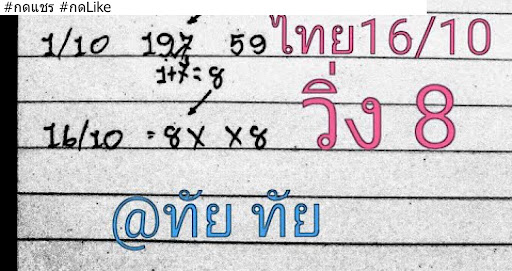 #กดแชร #กดLike
1/10 197 59 ไทย16/10
1+7=8
วิ่ง 8
16/10 =8X X8
@ทัย ทัย